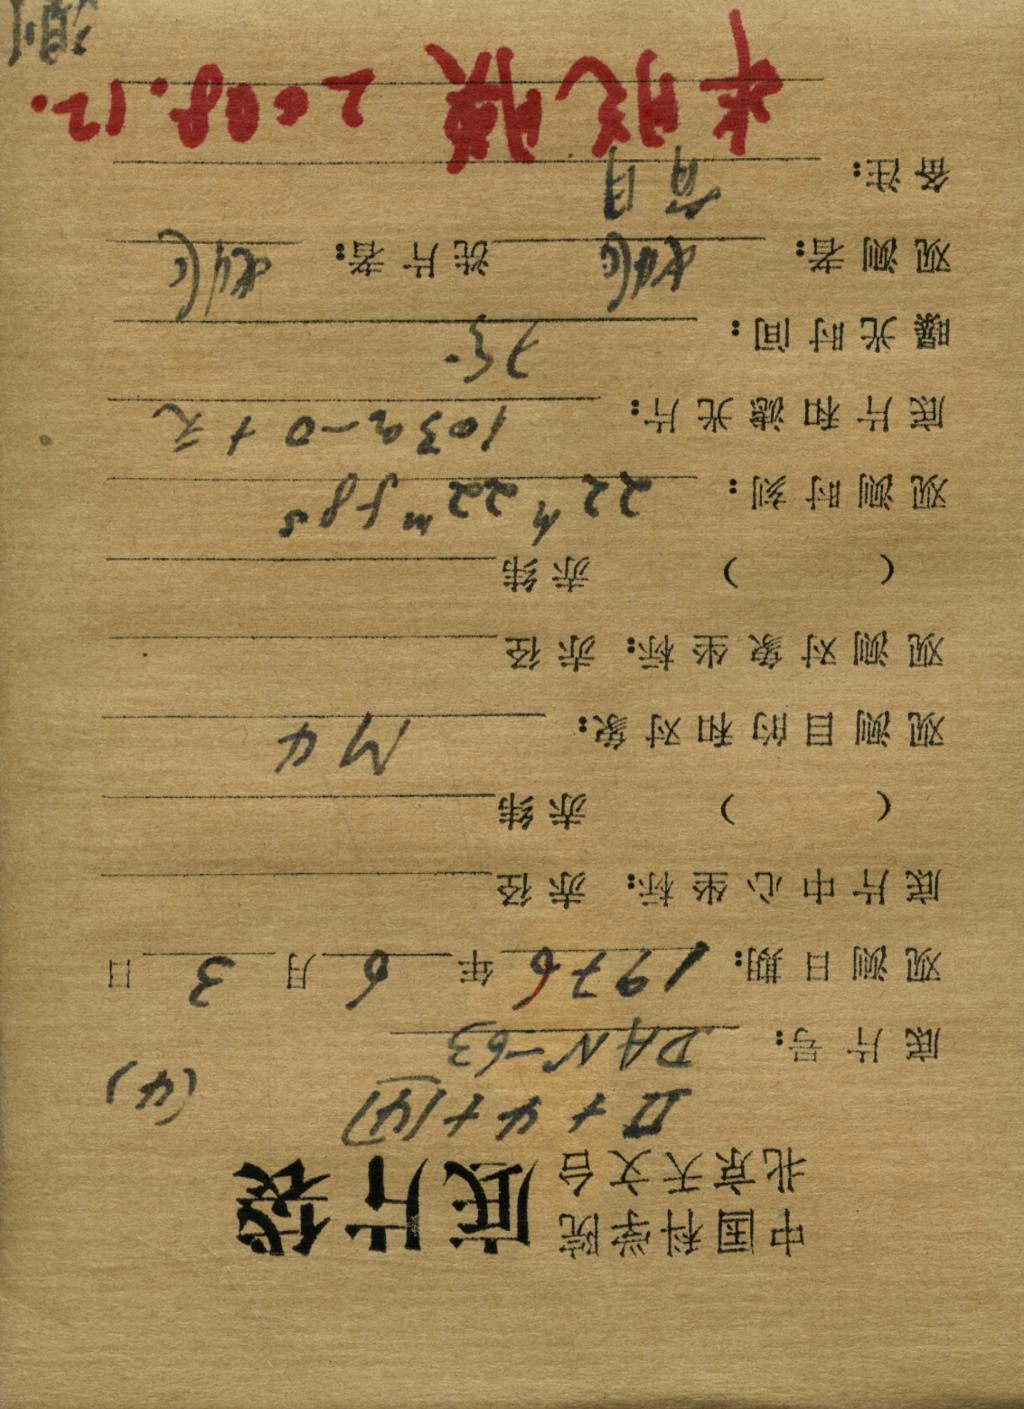 中国科学院
北京天文台 底片袋
II + 4 + (4) (4)
底片号: DAN-63
观测日期: 1976年6月3日
底片中心坐标: 赤径
( ) 赤纬
观测目的和对象: M4
观测对象坐标: 赤径
( ) 赤纬
观测时刻: 22h22m58s
底片和滤光片: 103a-O+无
曝光时间: 75
观测者: 洗片者:
备注: 有月
未脱膜 2008.12.
测